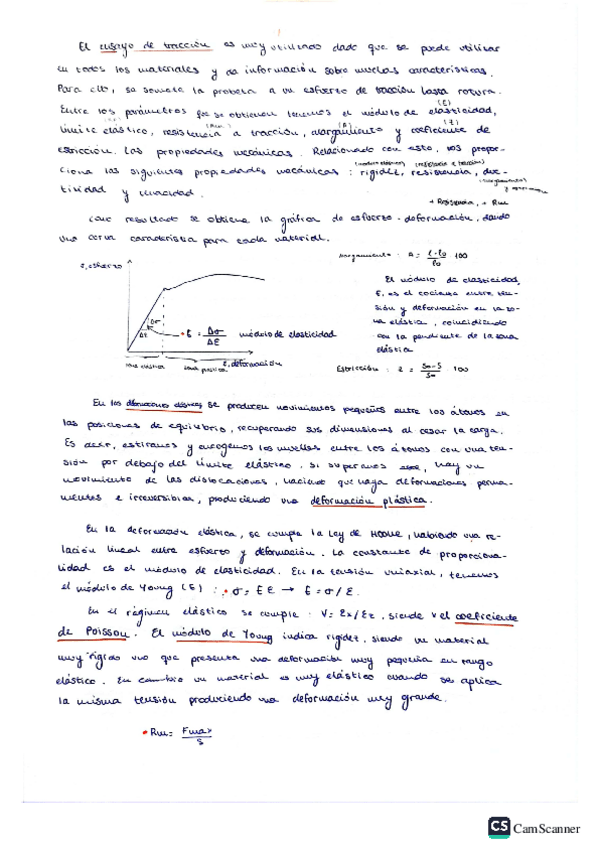 El ensayo de tracción es muy utilizado dado que se puede utilizar
en todos los materiales y da información sobre muchas características.
Para ello, se somete la probeta a un esfuerzo de tracción hasta rotura.
Entre los parámetros que se obtienen tenemos el módulo de elasticidad, (E)
límite elástico, resistencia a tracción, alargamiento y coeficiente de (Rm) (A) (Z)
estricción. Las propiedades mecánicas. Relacionado con esto, nos propor-
ciona las siguientes propiedades mecánicas: rigidez, resistencia, duc-
(módulo elástico) (resistencia a tracción)
tividad y tenacidad.
(alargamiento
+ Resistencia, + Rm
Como resultado se obtiene la gráfica de esfuerzo-deformación, dando
una curva característica para cada material.
Alargamiento: A = l-l0/l0 · 100
σ, esfuerzo
El módulo de elasticidad,
E, es el cociente entre ten-
sión y deformación en la zo-
na elástica, coincidiendo
con la pendiente de la zona
elástica
Δσ
Δε
• E = Δσ/Δε módulo de elasticidad
ε, deformación
zona elástica zona plástica
Estricción: Z = So-S/So · 100
En las deformaciones elásticas se producen movimientos pequeños entre los átomos en
las posiciones de equilibrio, recuperando sus dimensiones al cesar la carga.
Es decir, estiramos y encogemos los muelles entre los átomos con una ten-
sión por debajo del límite elástico. Si superamos este, hay un
movimiento de las dislocaciones, haciendo que haya deformaciones perma-
nentes e irreversibles, produciendo una deformación plástica.
En la deformación elástica, se cumple la Ley de HOOKE, habiendo una re-
lación lineal entre esfuerzo y deformación. La constante de proporciona-
lidad es el módulo de elasticidad. En la tensión uniaxial, tenemos
el módulo de Young (E): • σ = E ε → E = σ/ε.
En el régimen elástico se cumple: V = εx/εz, siendo v el coeficiente
de Poisson. El módulo de Young indica rigidez, siendo un material
muy rígido uno que presenta una deformación muy pequeña en rango
elástico. En cambio un material es muy elástico cuando se aplica
la misma tensión produciendo una deformación muy grande.
• Rm = Fmax/S
CS CamScanner